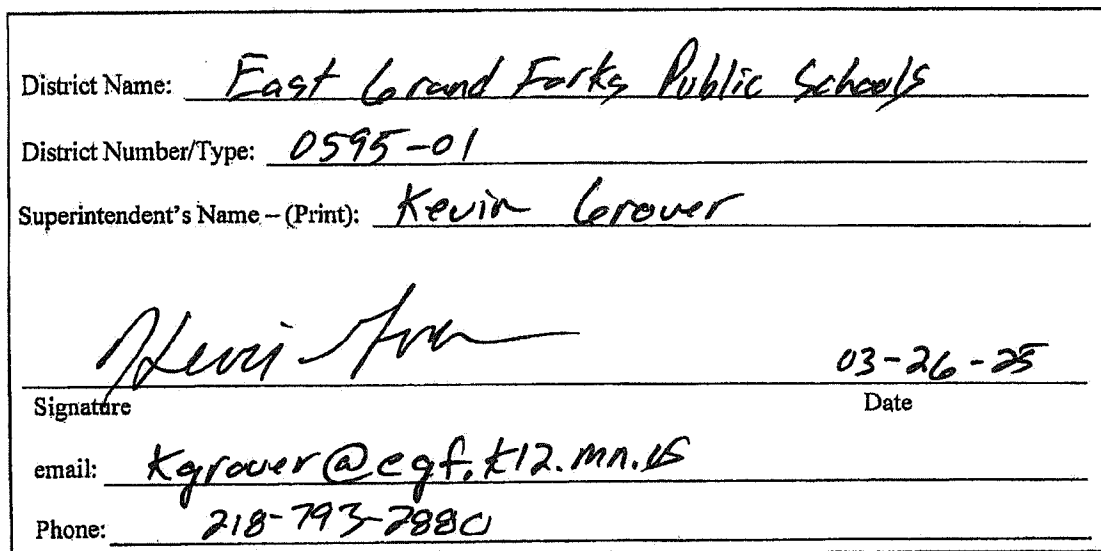 District Name: East Grand Forks Public Schools
District Number/Type: 0595-01
Superintendent's Name – (Print): Kevin Grover
Kevin Grover 03-26-25
Signature Date
email: kgrover@egf.k12.mn.us
Phone: 218-793-2880